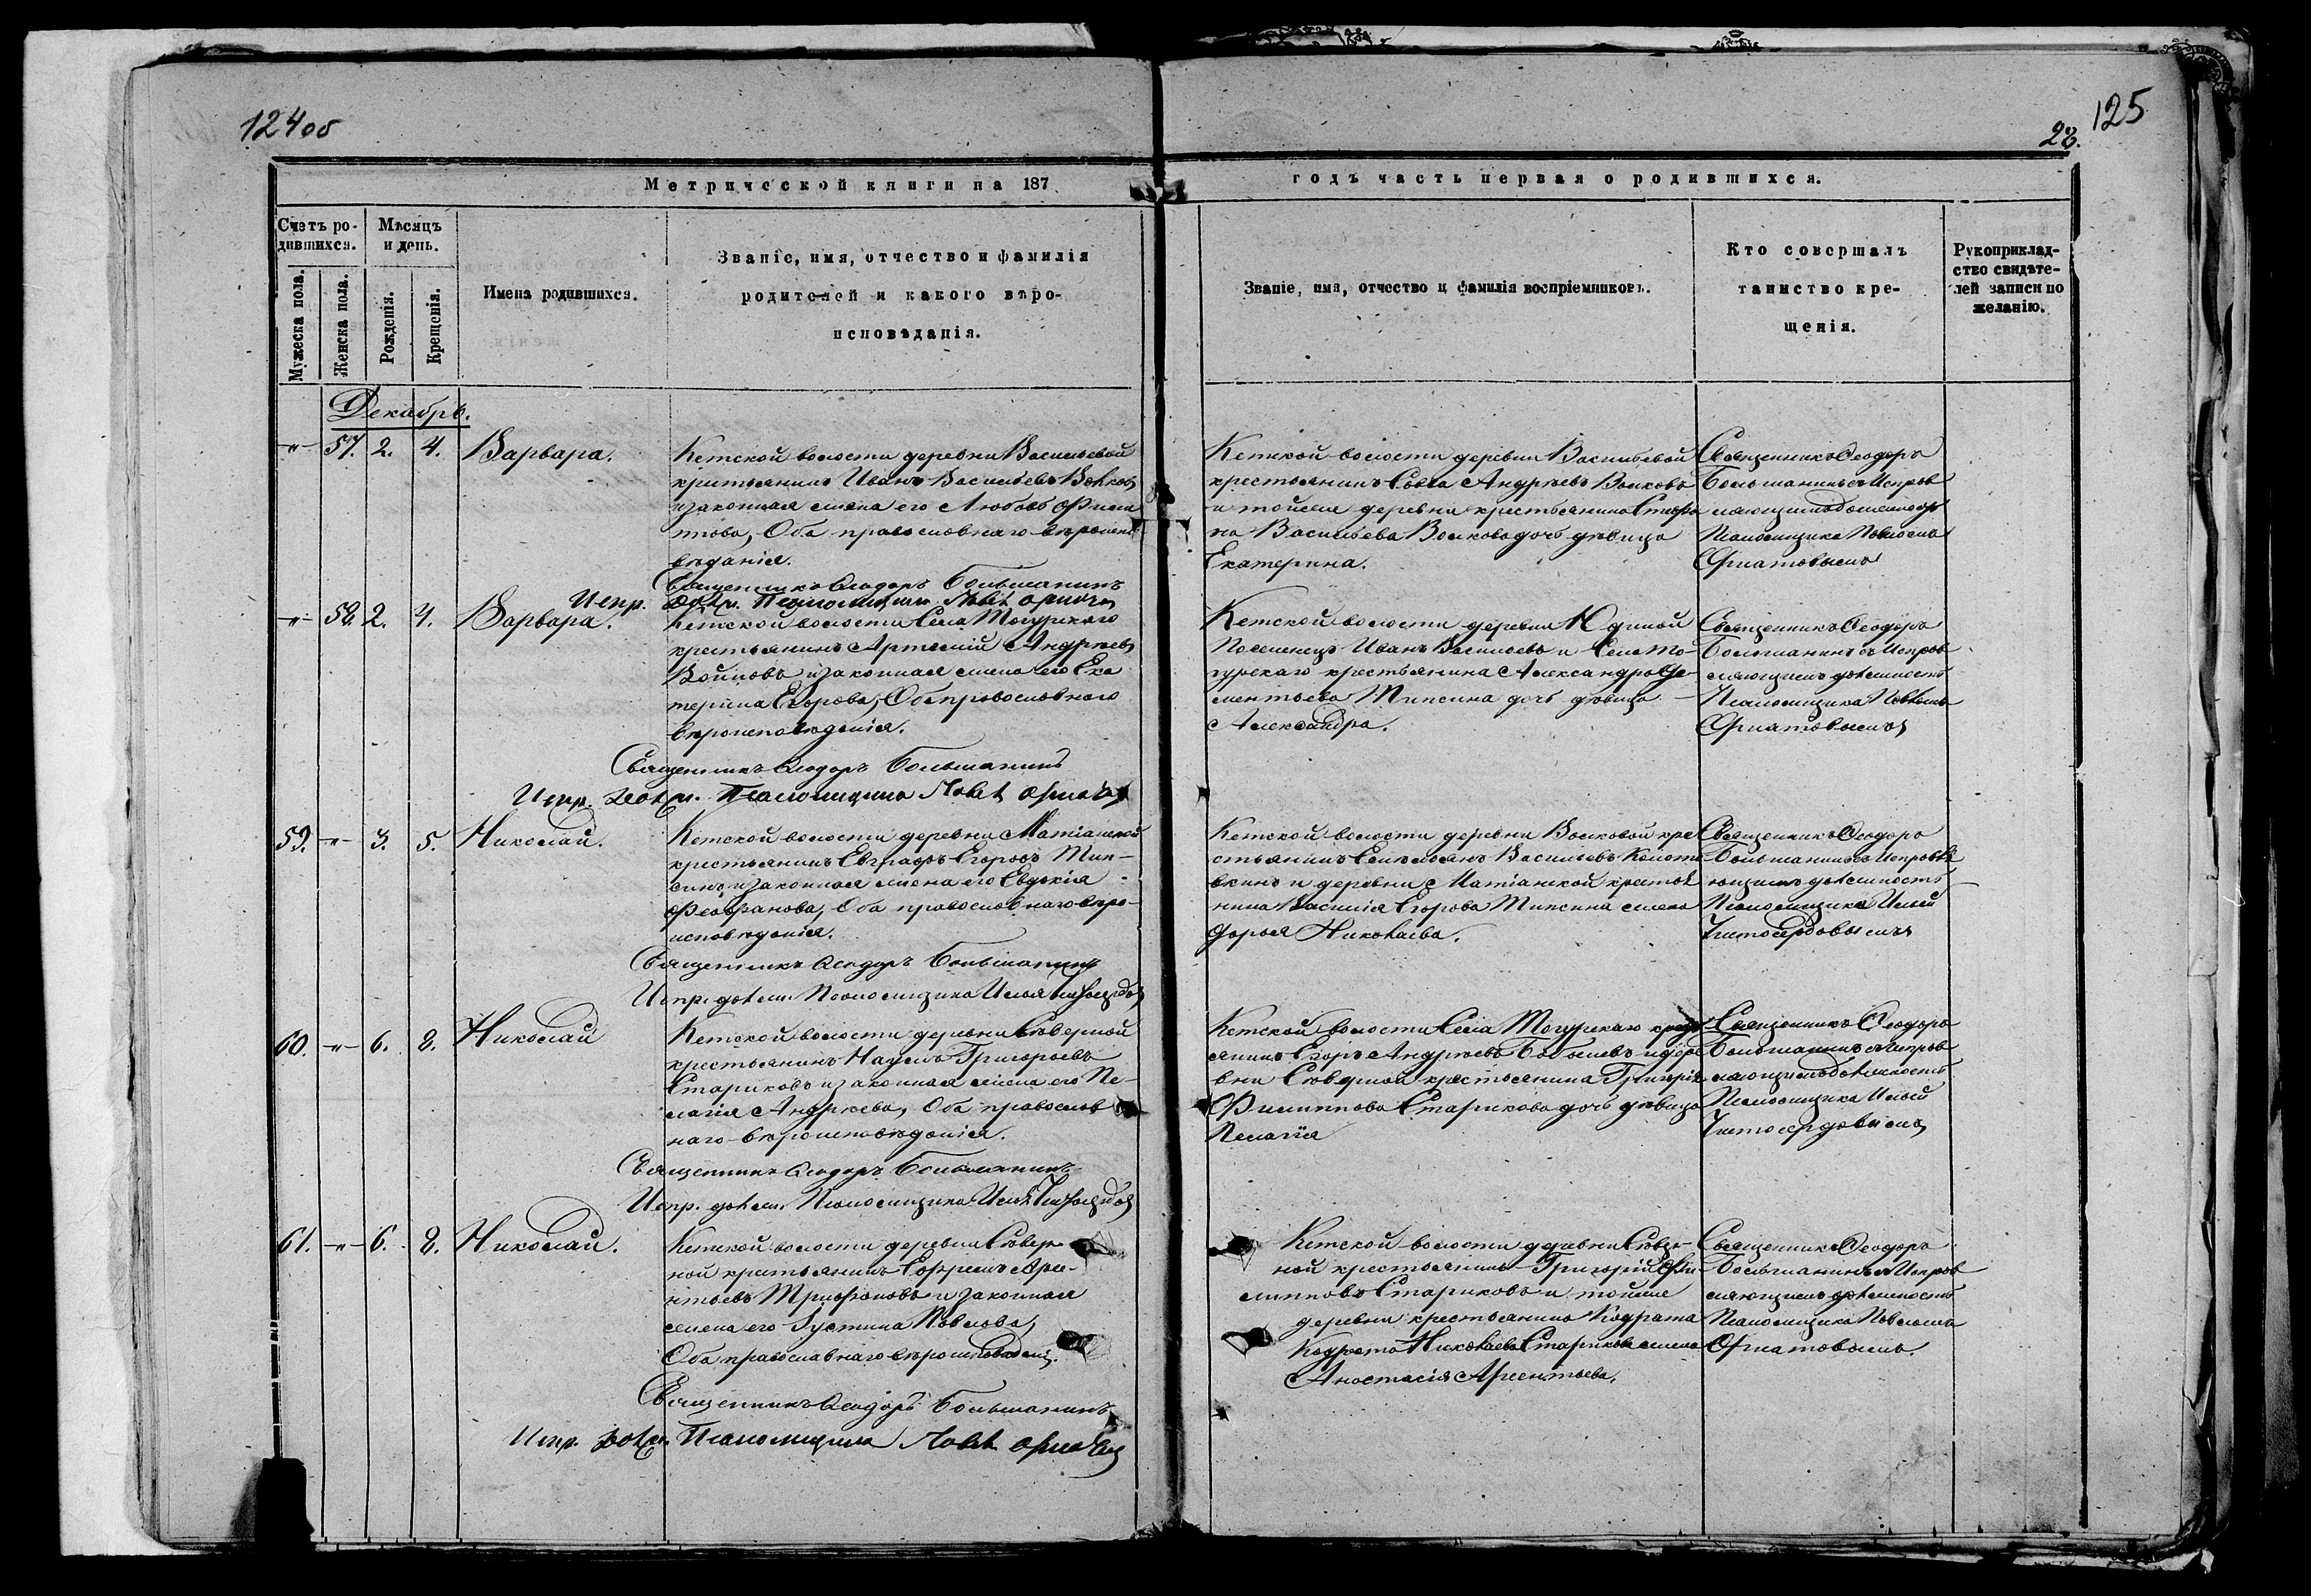 124 об
125
28.
Метрической книги на 187
годъ часть первая о родившихся.
Счетъ ро-
дившихся.
Мѣсяцъ
и день.
Мужеска пола.
Женска пола.
Рожденія.
Крещенія.
Имена родившихся.
Званіе, имя, отчество и фамилія
родителей и какого вѣро-
исповѣданія.
Званіе, имя, отчество и фамилія воспріемниковъ.
Кто совершалъ
таинство кре-
щенія.
Рукоприклад-
ство свидѣте-
лей записи по
желанію.
Декабрь.
-"- 57. 2. 4. Варвара.
Кетской волости деревни Васильевой
крестьянинъ Иванъ Васильевъ Волковъ
и законная жена его Любовь Филип
пова, Оба православнаго вѣроиспо
вѣданія.
Священникъ Ѳеодоръ Большанинъ
Испр. должн. Псаломщика Павелъ
Кетской волости деревни Васильевой
крестьянинъ Савва Андреевъ Волковъ
и тойже деревни крестьянина Степа
на Васильева Волкова дочь дѣвица
Екатерина.
Священникъ Ѳеодоръ
Большанинъ съ Исправ
ляющимъ должность
Псаломщика Павломъ
-"- 58. 2. 4. Варвара.
Кетской волости Села Тогурскаго
крестьянинъ Артемій Андреевъ
Войновъ и законная жена его Ека
терина Егорова, Оба православнаго
вѣроисповѣданія.
Священникъ Ѳеодоръ Большанинъ
Испр. должн. Псаломщика Павелъ
Кетской волости деревни Юдиной
Поселенецъ Иванъ Васильевъ и Села То-
гурскаго крестьянина Александра Де-
ментьева Типсина дочь дѣвица
Александра.
Священникъ Ѳеодоръ
Большанинъ съ Исправ
ляющимъ должность
Псаломщика Павломъ
59. -"- 3. 5. Николай.
Кетской волости деревни Матіанской
крестьянинъ Евграфъ Егоровъ Тип-
синъ и законная жена его Евдокія
Феофанова, Оба православнаго вѣро-
исповѣданія.
Священникъ Ѳеодоръ Большанинъ
Испр. должн. Псаломщика Илья Чистосердовъ
Кетской волости деревни Волковой кре
стьянинъ Емельянъ Васильевъ
и деревни Матіанской крестья
нина Василія Егорова Типсина жена
Дарья Николаева.
Священникъ Ѳеодоръ
Большанинъ съ Исправля
ющимъ должность
Псаломщика Ильей
Чистосердовымъ
60. -"- 6. 8. Николай
Кетской волости деревни Сѣверной
крестьянинъ Наумъ Григорьевъ
Стариковъ и законная жена его Пе-
лагія Андреева, Оба православ
наго вѣроисповѣданія.
Священникъ Ѳеодоръ Большанинъ
Испр. должн. Псаломщика Илья Чистосердовъ
Кетской волости Села Тогурскаго кресть
янинъ Егоръ Андреевъ и дере
вни Сѣверной крестьянина Григорія
Филиппова Старикова дочь дѣвица
Пелагія
Священникъ Ѳеодоръ
Большанинъ съ Исправ
ляющимъ должность
Псаломщика Ильей
Чистосердовымъ
61. -"- 6. 8. Николай.
Кетской волости деревни Сѣвер-
ной крестьянинъ Ефремъ Арсе-
нтьевъ Трифоновъ и законная
жена его Іустина Павлова,
Оба православнаго вѣроисповѣданія.
Священникъ Ѳеодоръ Большанинъ
Испр. должн. Псаломщика Павелъ
Кетской волости деревни Сѣвер-
ной крестьянинъ Григорій Фи-
липповъ Стариковъ и тойже
деревни крестьянина Кодрата
Кодрата Николаева Старикова жена
Анастасія Арсентьева.
Священникъ Ѳеодоръ
Большанинъ съ Исправ
ляющимъ должность
Псаломщика Павломъ